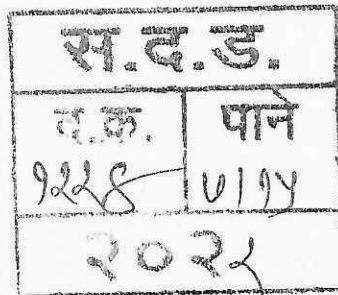 स.द.ड.
द.क्र. पाने
१२२४ ७/१५
२०२२